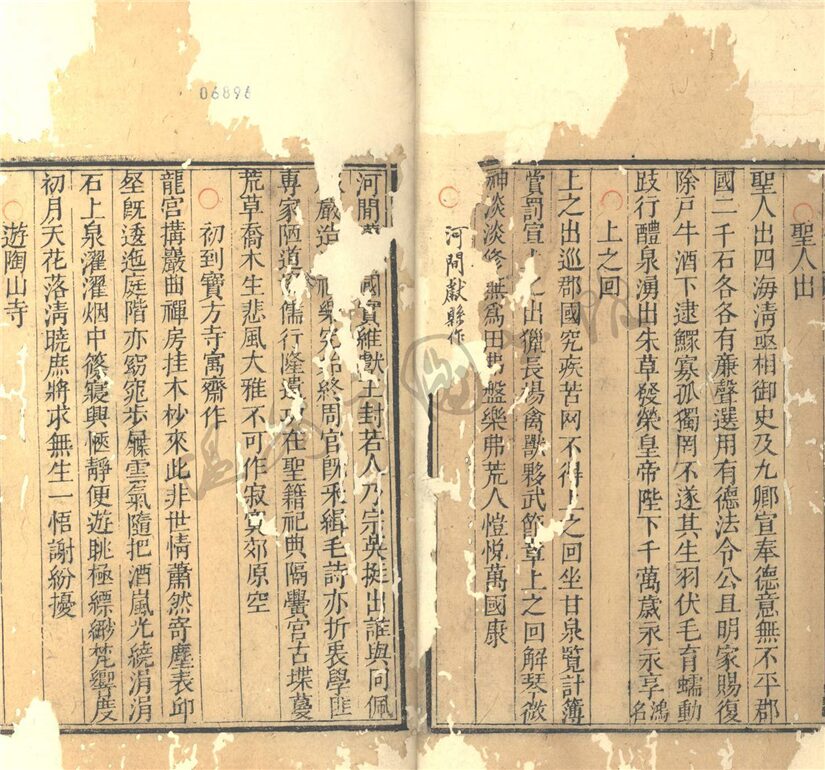 聖人出
聖人出四海淸丞相御史及九卿宣奉德意無不平郡
國二千石各各有廉聲選用有德法令公且明家賜復
除戸牛酒下逮鰥寡孤獨罔不遂其生羽伏毛育蠕動
跂行醴泉湧出朱草發榮皇帝陛下千萬歲永永享鴻名
上之回
上之出巡郡國究疾苦网不得上之回坐甘泉覽計簿
賞罰宣上之出獵長場禽獸夥武節章上之回解琴徽
神淡淡修無爲田弗盤樂弗荒人愷悅萬國康
河間獻縣作
河間國實維獻王封若人乃宗英挺出誰與同佩
嚴造禮樂究始終周官旣釆緝毛詩亦折衷學匪
專家陋道儒行隆遺在聖籍祀典隔黌宮古堞蔓
荒草喬木生悲風大雅不可作寂寞郊原空
初到寶方寺寓齋作
龍宮搆巖曲禪房挂木杪來此非世情蕭然寄塵表邱
壑旣逶迤庭階亦窈窕步屧雲氣隨把酒嵐光繞涓涓
石上泉濯濯烟中篠寢興愜靜便遊眺極縹緲梵響度
初月天花落淸曉庶將求無生一悟謝紛擾
遊陶山寺
06896